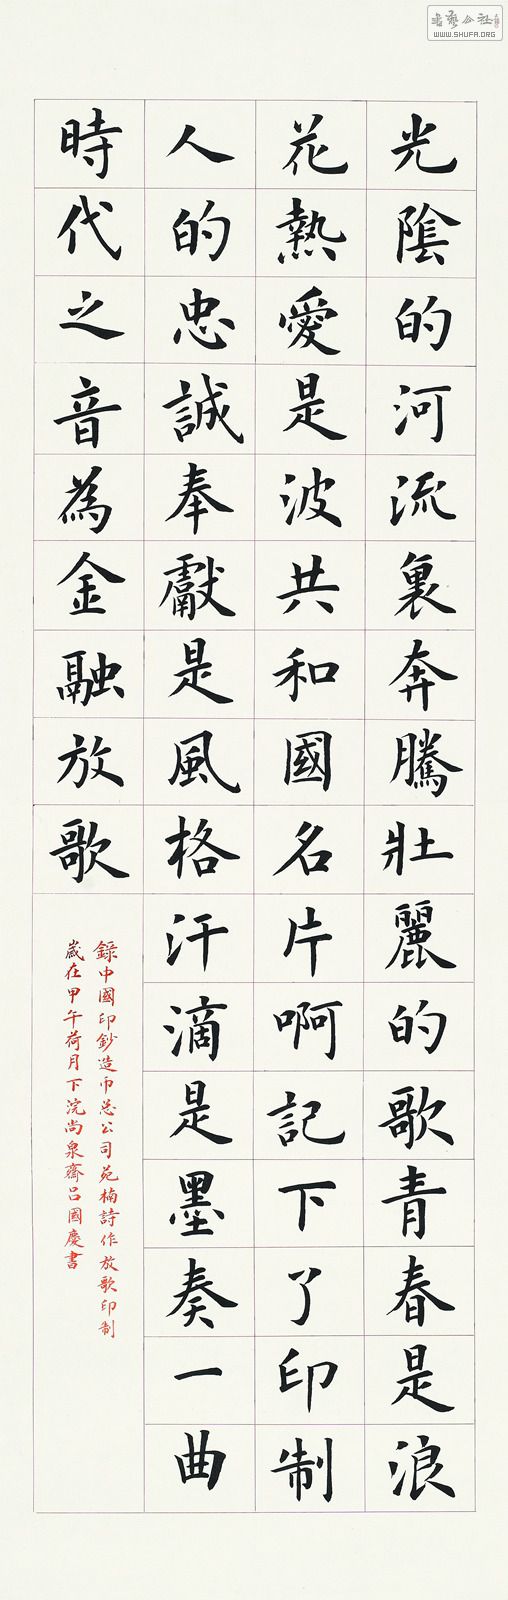 光陰的河流裏奔騰壯麗的歌青春是浪
花熱愛是波共和國名片啊記下了印制
人的忠誠奉獻是風格汗滴是墨奏一曲
時代之音為金融放歌
錄中國印鈔造币总公司苑楠詩作放歌印制
歲在甲午荷月下浣尚泉齋吕國慶書
書藝公社
WWW.SHUFA.ORG